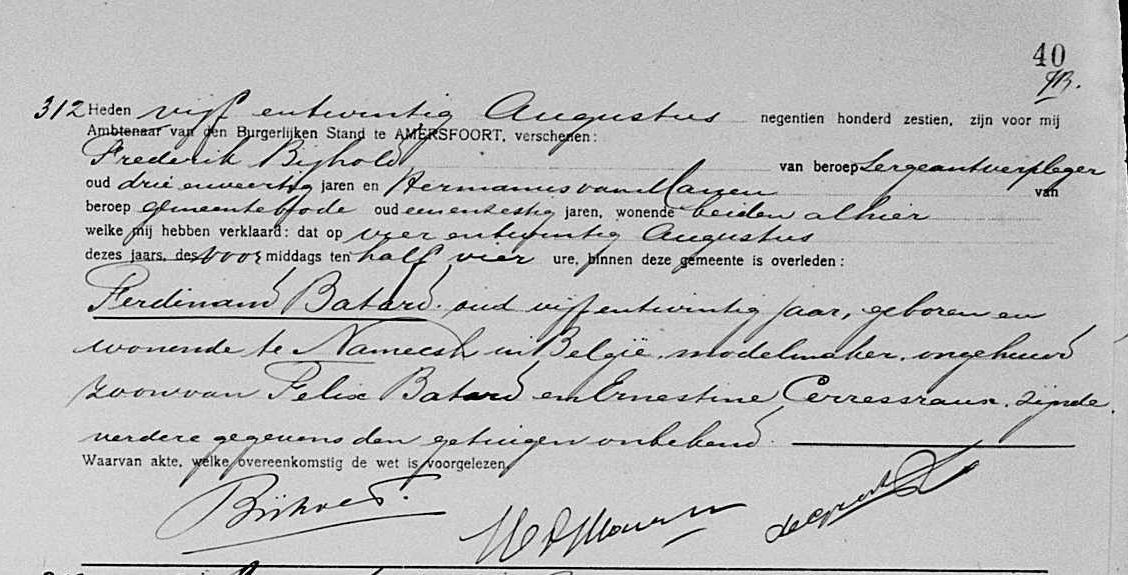 40
312 Heden vijf entwintig Augustus negentien honderd zestien, zijn voor mij
Ambtenaar van den Burgerlijken Stand te AMERSFOORT, verschenen:
Frederik Bijhold van beroep Sergeantverpleger
oud drie enveertig jaren en Hermanus van Maren van
beroep gemeentebode oud eenenzestig jaren, wonende beiden alhier
welke mij hebben verklaard: dat op vier entwintig Augustus
dezes jaars, des voor middags ten half vier ure, binnen deze gemeente is overleden:
Ferdinand Batard, oud vijfentwintig jaar, geboren en
wonende te Namecsh in België, modelmaker, ongehuwd
zoon van Felix Batard en Ernestine Cerressraux, zijnde
verdere gegevens den getuigen onbekend.
Waarvan akte, welke overeenkomstig de wet is voorgelezen,